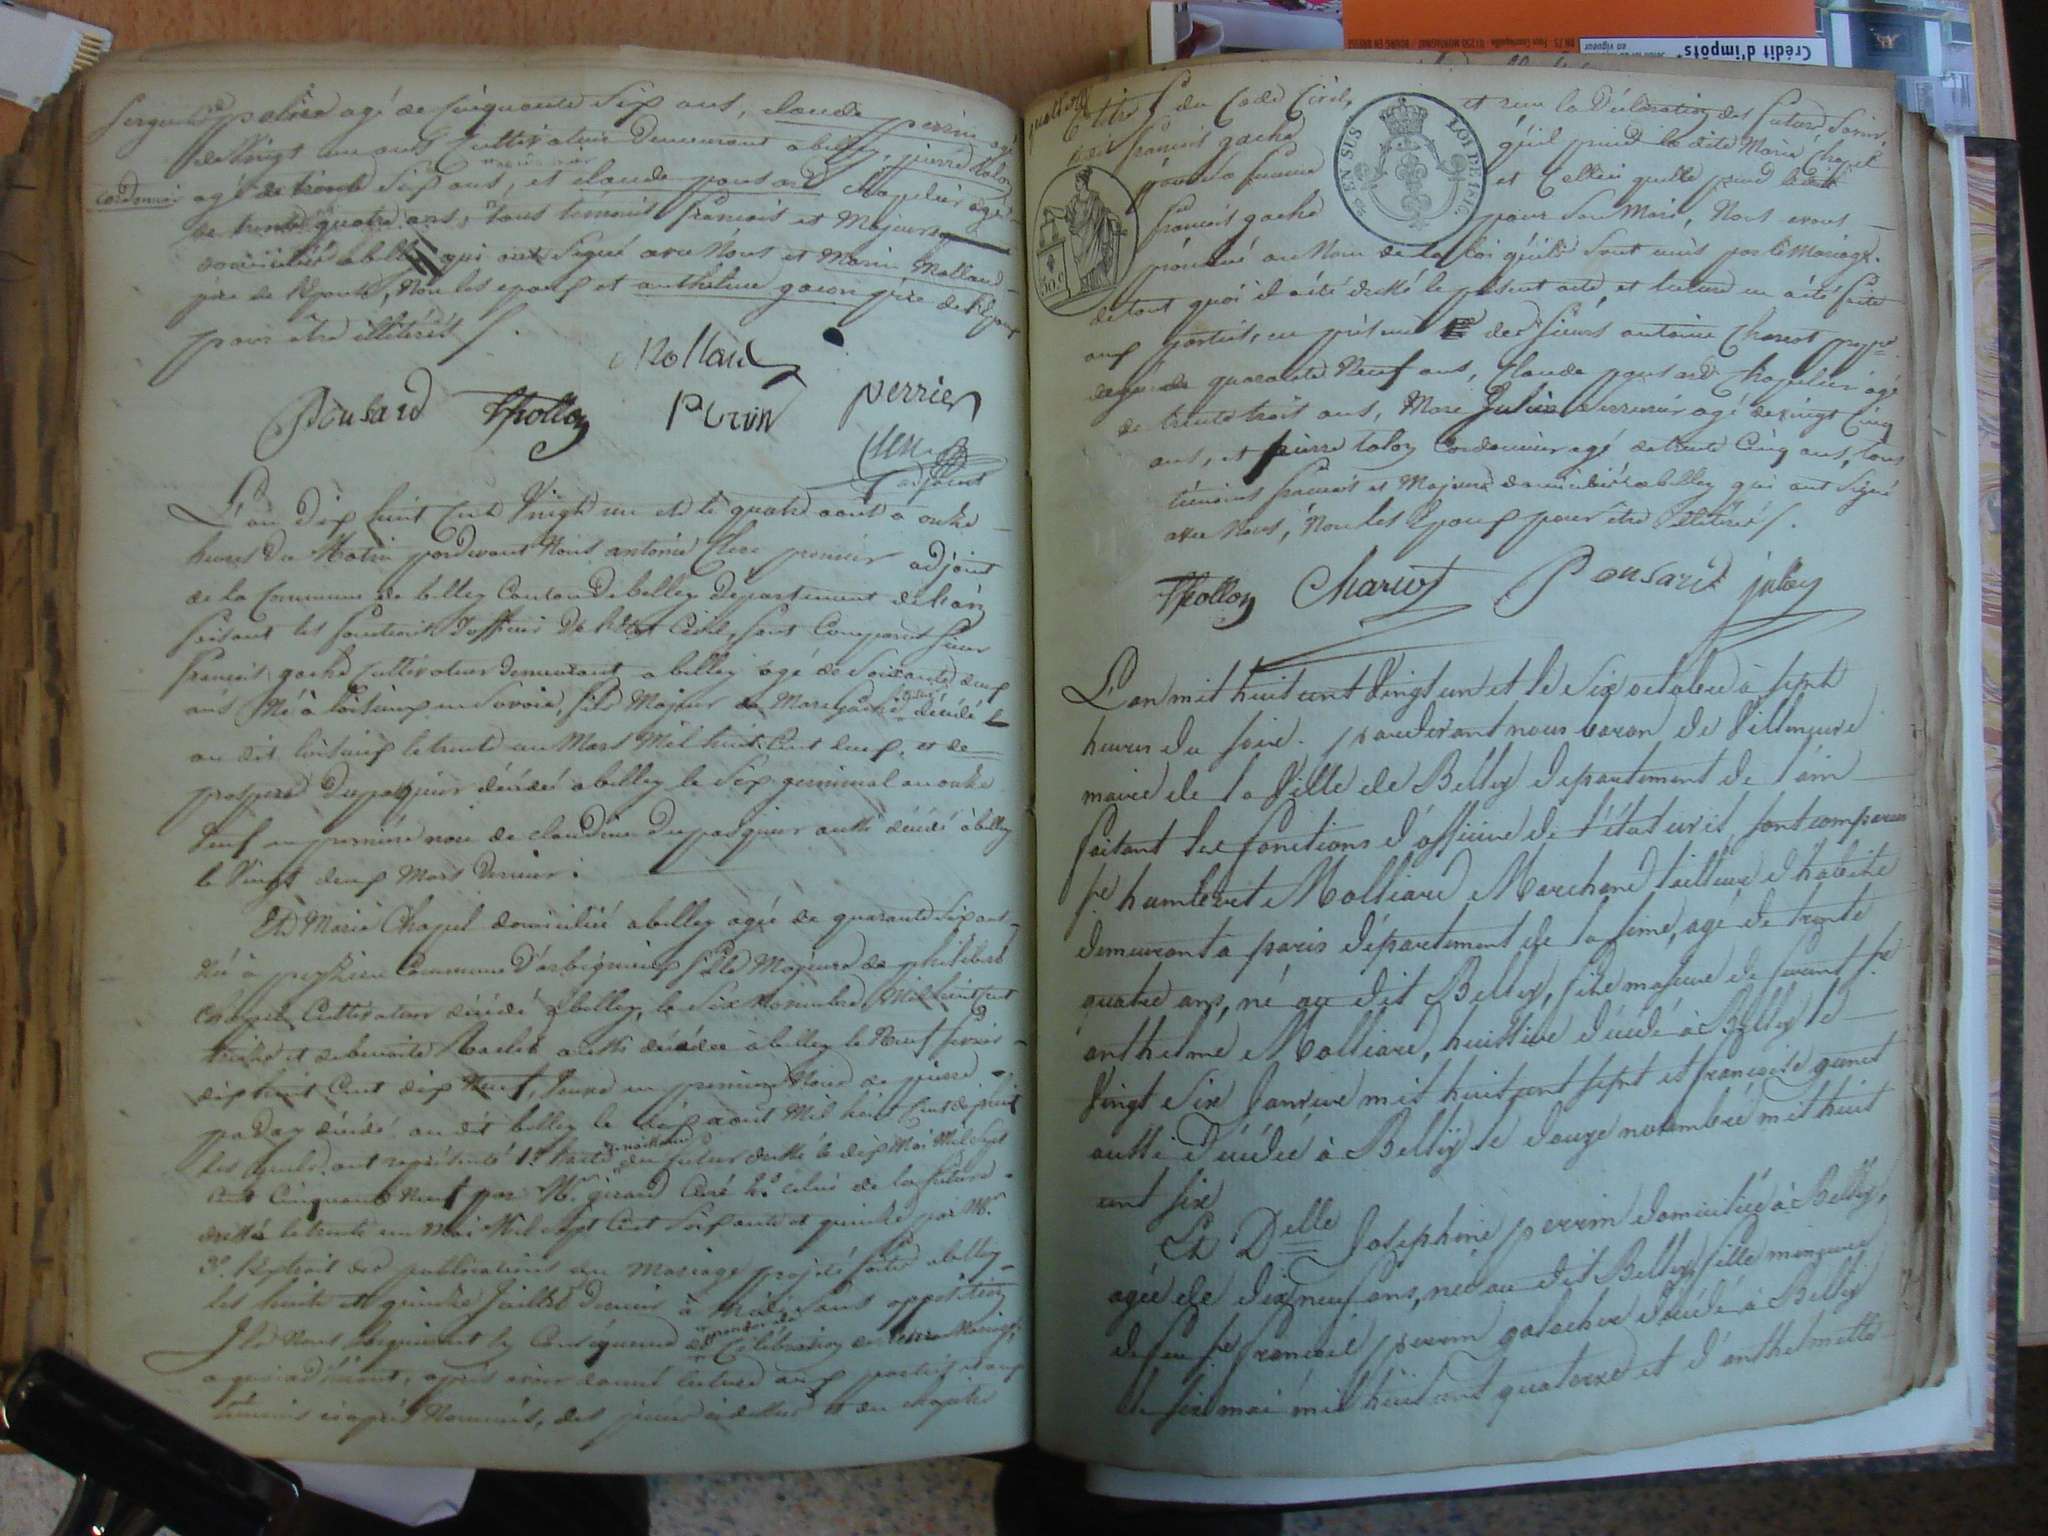 Sergent de police agé de cinquante Six ans, claude perrin agé
de Vingt un ans Cultivateur Demeurant a belley, pierre tolon
cordonnier agé de trente Six ans, et claude ponsard Chapelier agé
de trente quatre ans, tous temoins francois et Majeurs
domiciliés a belley qui ont Signé avec Nous et Marin Mollard
père de l'Epouse, Non les epoux et anthelme gacon père de l'Epoux
pour être illitéres.
Mollard
Ponsard Thollon Perrin perrier
Clerc
adjoint
L'an Dix huit Cent Vingt un et le quatre aout à onze
heures du Matin pardevant Nous antoine Clerc premier adjoint
de la Commune de belley Canton De belley Departement de l'ain
faisant les fonctions D'officier De l'Etat Civil, sont Comparus sieur
francois gaché cultivateur demeurant a belley agé de Soixante deux
ans Né à Loisieux en Savoie, fils Majeur de Marc gaché décédé
au dit Loisieux le trente un Mars Mil huit Cent deux, et de
prospere Dupasquier décédée a belley le Six germinal an onze
Veuf en première noce de claudine Dupasquier aussi décédé à belley
le Vingt deux Mars Dernier.
Et Marie Chapel domiciliée a belley agée de quarante Six ans
Née à peyzieu Commune D'arbignieux fille Majeure de philibert
Chapel Cultivateur décédé a belley, le Six Novembre Mil huit cent
treize et de benoite Raclet aussi décédée à belley le Neuf fevrier
dix huit Cent dix Neuf, Veuve en première Noce de pierre
paday décédé au dit belley le dix aout Mil huit Cent dix huit
les quels ont représenté 1° l'acte de naissance du futur dressé le dix Mai Mil Sept
cent Cinquante Neuf par Mr girard Curé 2° celui de la future
dressé le trente un Mai Mil Sept Cent Soixante et quinze par Mr
3° l'Extrait des publications du Mariage projeté faites a belley
les huit et quinze Juillet Dernier à Midi, sans opposition
Ils Nous requierent En Conséquence de procéder a la Célébration de leur Mariage,
a quoi adhérant, après avoir donné lecture aux parties et aux
témoins ci après Nommés, des pièces ci dessus et du chapitre
Six du titre 5 du Code Civil, et sur la Déclaration des Futurs Savoir,
ledit francois gaché qu'il prend la dite Marie Chapel
pour sa femme et Celle ci qu'elle prend ledit
francois gaché pour Son Mari, Nous avons
prononcé au Nom de la Loi qu'ils Sont unis par le Mariage.
de tout quoi il a été dressé le présent acte et lecture en a été faite
aux parties, en présence des sieurs antoine Chariot propre
agé de quarante Neuf ans, Claude ponsard Chapelier agé
de trente trois ans, Marc Julin serrurier agé de vingt Cinq
ans, et pierre tolon Cordonnier agé de trente Cinq ans, tous
témoins francois et Majeurs domiciliés a belley qui ont Signé
avec Nous, Non les Epoux pour être Illitérés.
EN SUS LOI DE 1816.
50 c.
Thollon Chariot Ponsard julin
L'an mil huit cent Vingt un et le Six octobre à sept
heures du soir. pardevant nous baron de Villeneuve
maire de la Ville de Belley département de l'ain
faisant les fonctions d'officier de l'état civil, sont comparus
sr humbert Molliard Marchand tailleur d'habits
demeurant a paris département de la seine, agé de trente
quatre ans, né au dit Belley, fils majeur de feu sr
anthelme Molliard, huissier décédé à Belley le
Vingt Six Janvier mil huit cent sept et francoise genet
aussi décédée à Belley le douze novembre mil huit
cent six
Et Delle Josephine perrin domiciliée à Belley,
agée de dix neuf ans, née au dit Belley, fille mineure
de feu sr francois perrin galocher décédé à Belley
le six mai mil huit cent quatorze et d'anthelmette
Crédit d'impôts*
en vigueur